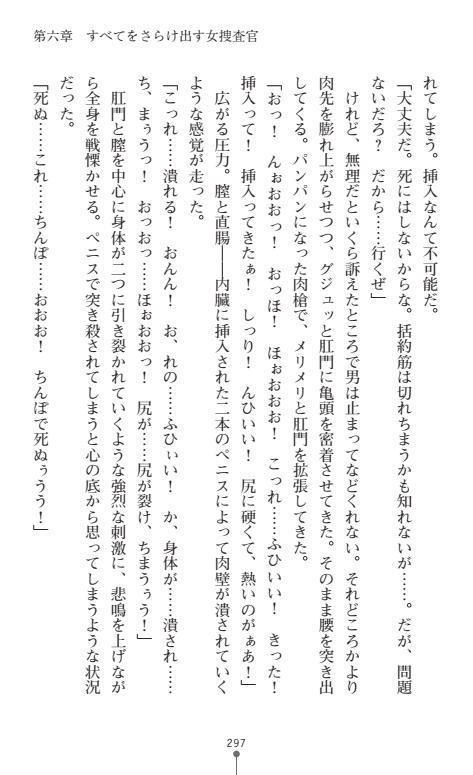 第六章　すべてをさらけ出す女捜査官
れてしまう。挿入なんて不可能だ。
「大丈夫だ。死にはしないからな。括約筋は切れちまうかも知れないが……。だが、問題
ないだろ？　だから……行くぜ」
けれど、無理だといくら訴えたところで男は止まってなどくれない。それどころかより
肉先を膨れ上がらせつつ、グジュッと肛門に亀頭を密着させてきた。そのまま腰を突き出
してくる。パンパンになった肉槍で、メリメリと肛門を拡張してきた。
「おっ！　んぉおおっ！　おっほ！　ほぉおおお！　こっれ……ふひいい！　きった！
挿入って！　挿入ってきたぁ！　しっり！　んひいい！　尻に硬くて、熱いのがぁあ！」
広がる圧力。膣と直腸――内臓に挿入された二本のペニスによって肉壁が潰されていく
ような感覚が走った。
「こっれ……潰れる！　おんん！　お、れの……ふひぃい！　か、身体が……潰され……
ち、まぅうっ！　おっおっ……ほぉおおっ！　尻が……尻が裂け、ちまうぅう！」
肛門と膣を中心に身体が二つに引き裂かれていくような強烈な刺激に、悲鳴を上げなが
ら全身を戦慄かせる。ペニスで突き殺されてしまうと心の底から思ってしまうような状況
だった。
「死ぬ……これ……ちんぽ……おおお！　ちんぽで死ぬぅうう！」
297